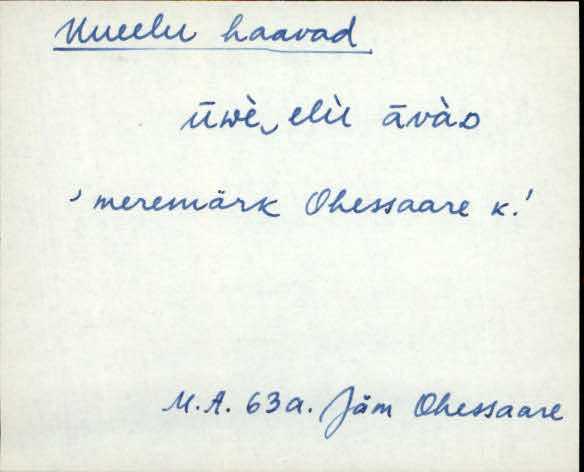 Uueelu haavad
ūwè‿elìt āvàᴅ
'meremärk Ohessaare k.'
M.A. 63a. Jäm Ohessaare